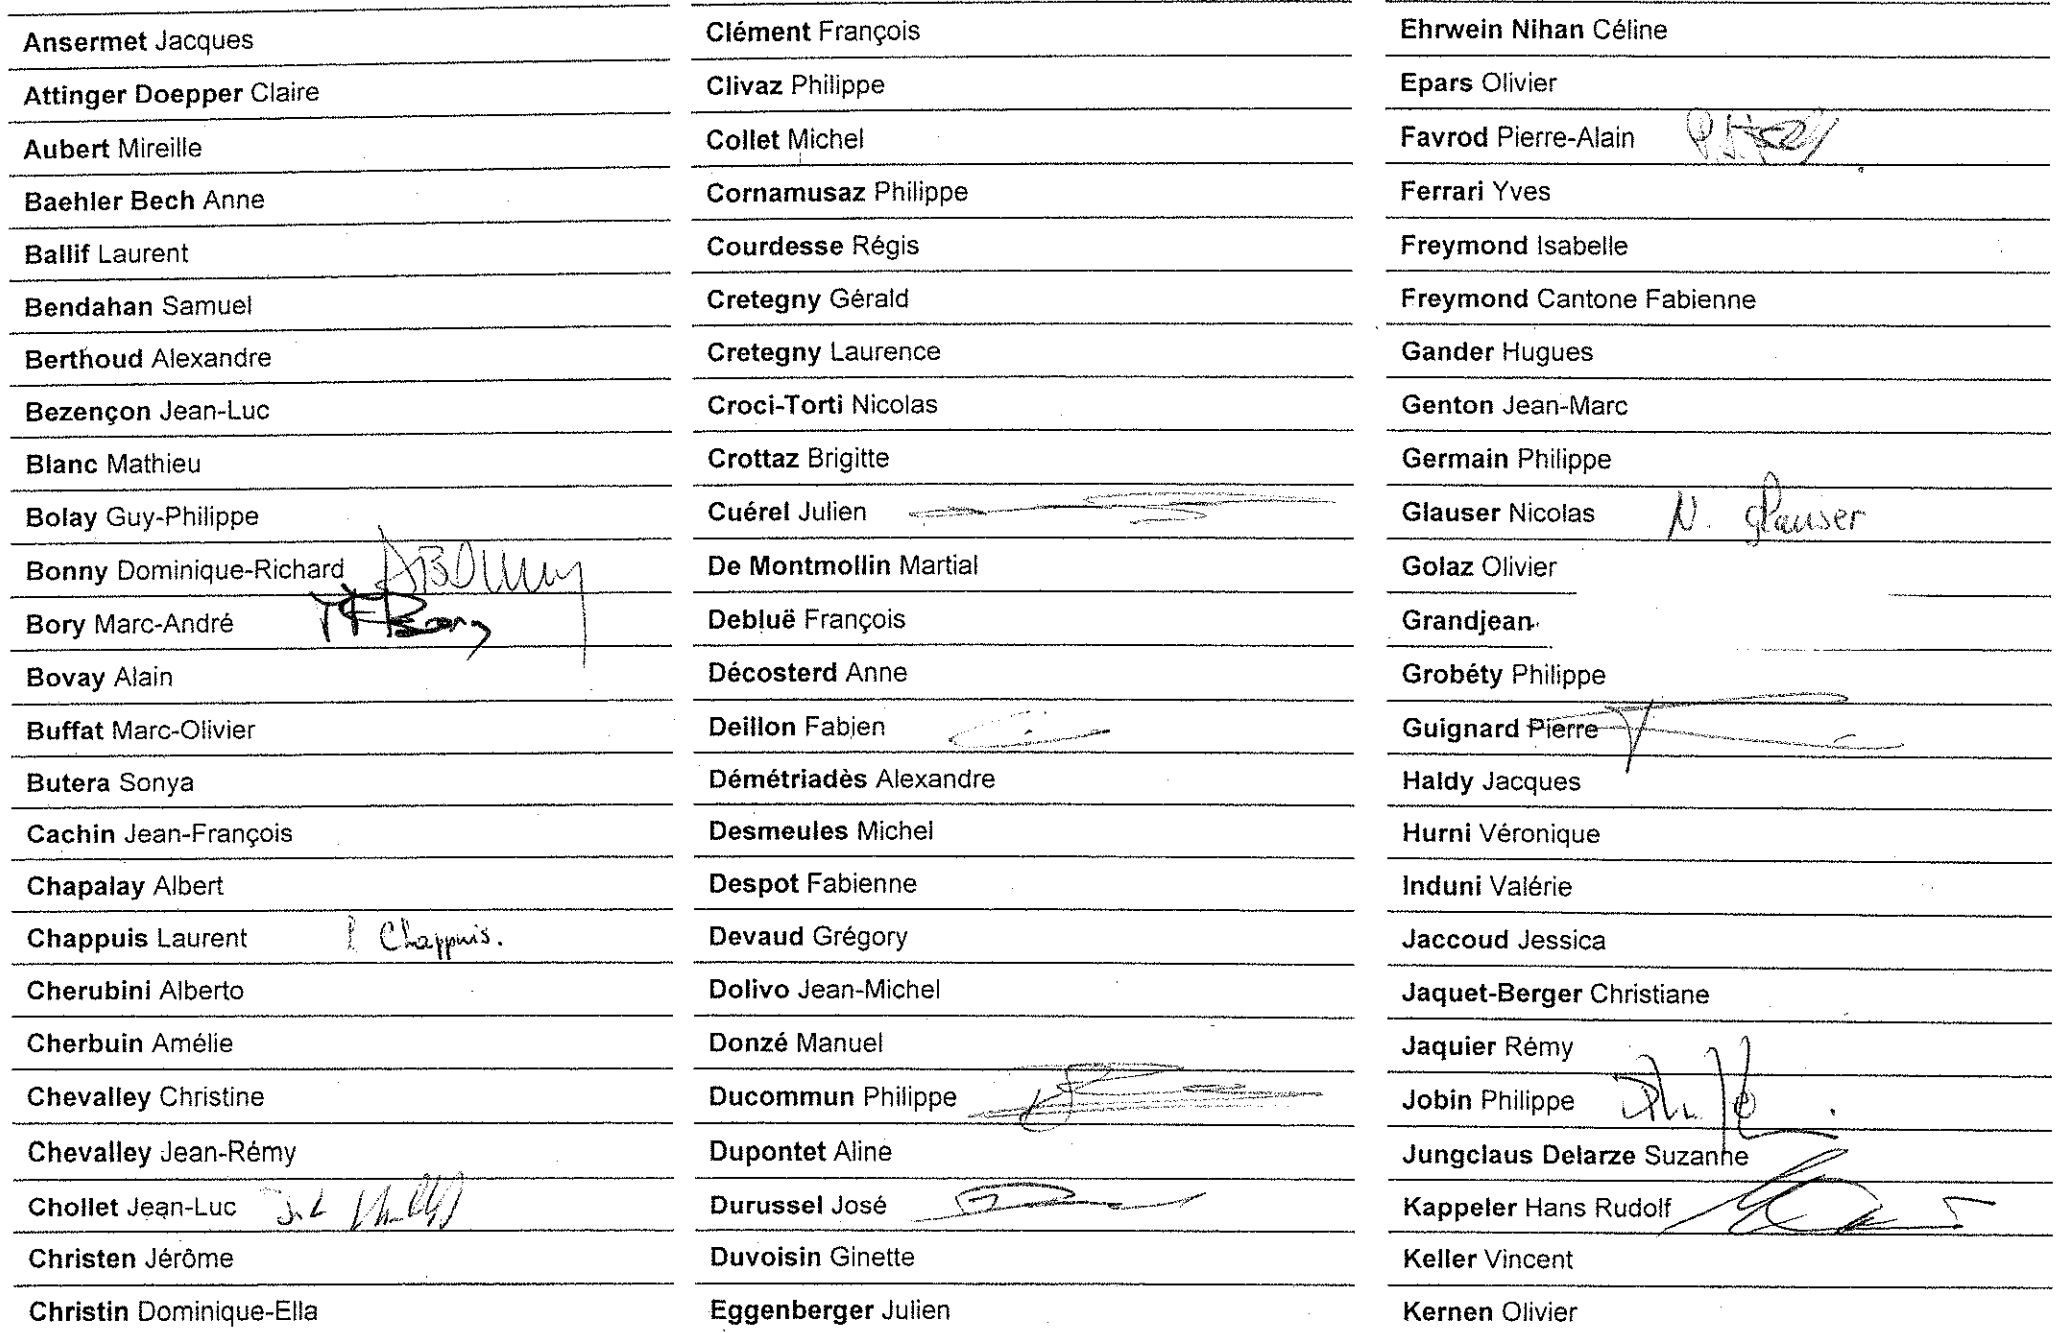 Ansermet Jacques
Attinger Doepper Claire
Aubert Mireille
Baehler Bech Anne
Ballif Laurent
Bendahan Samuel
Berthoud Alexandre
Bezençon Jean-Luc
Blanc Mathieu
Bolay Guy-Philippe
Bonny Dominique-Richard
Bory Marc-André
Bovay Alain
Buffat Marc-Olivier
Butera Sonya
Cachin Jean-François
Chapalay Albert
Chappuis Laurent Chappuis.
Cherubini Alberto
Cherbuin Amélie
Chevalley Christine
Chevalley Jean-Rémy
Chollet Jean-Luc
Christen Jérôme
Christin Dominique-Ella
Clément François
Clivaz Philippe
Collet Michel
Cornamusaz Philippe
Courdesse Régis
Cretegny Gérald
Cretegny Laurence
Croci-Torti Nicolas
Crottaz Brigitte
Cuérel Julien
De Montmollin Martial
Debluë François
Décosterd Anne
Deillon Fabien
Démétriadès Alexandre
Desmeules Michel
Despot Fabienne
Devaud Grégory
Dolivo Jean-Michel
Donzé Manuel
Ducommun Philippe
Dupontet Aline
Durussel José
Duvoisin Ginette
Eggenberger Julien
Ehrwein Nihan Céline
Epars Olivier
Favrod Pierre-Alain
Ferrari Yves
Freymond Isabelle
Freymond Cantone Fabienne
Gander Hugues
Genton Jean-Marc
Germain Philippe
Glauser Nicolas N. Glauser
Golaz Olivier
Grandjean
Grobéty Philippe
Guignard Pierre
Haldy Jacques
Hurni Véronique
Induni Valérie
Jaccoud Jessica
Jaquet-Berger Christiane
Jaquier Rémy
Jobin Philippe
Jungclaus Delarze Suzanne
Kappeler Hans Rudolf
Keller Vincent
Kernen Olivier